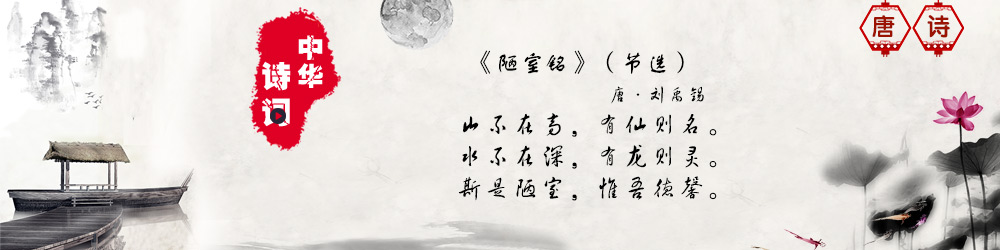 中华
诗词
唐诗
《陋室铭》（节选）
唐·刘禹锡
山不在高，有仙则名。
水不在深，有龙则灵。
斯是陋室，惟吾德馨。